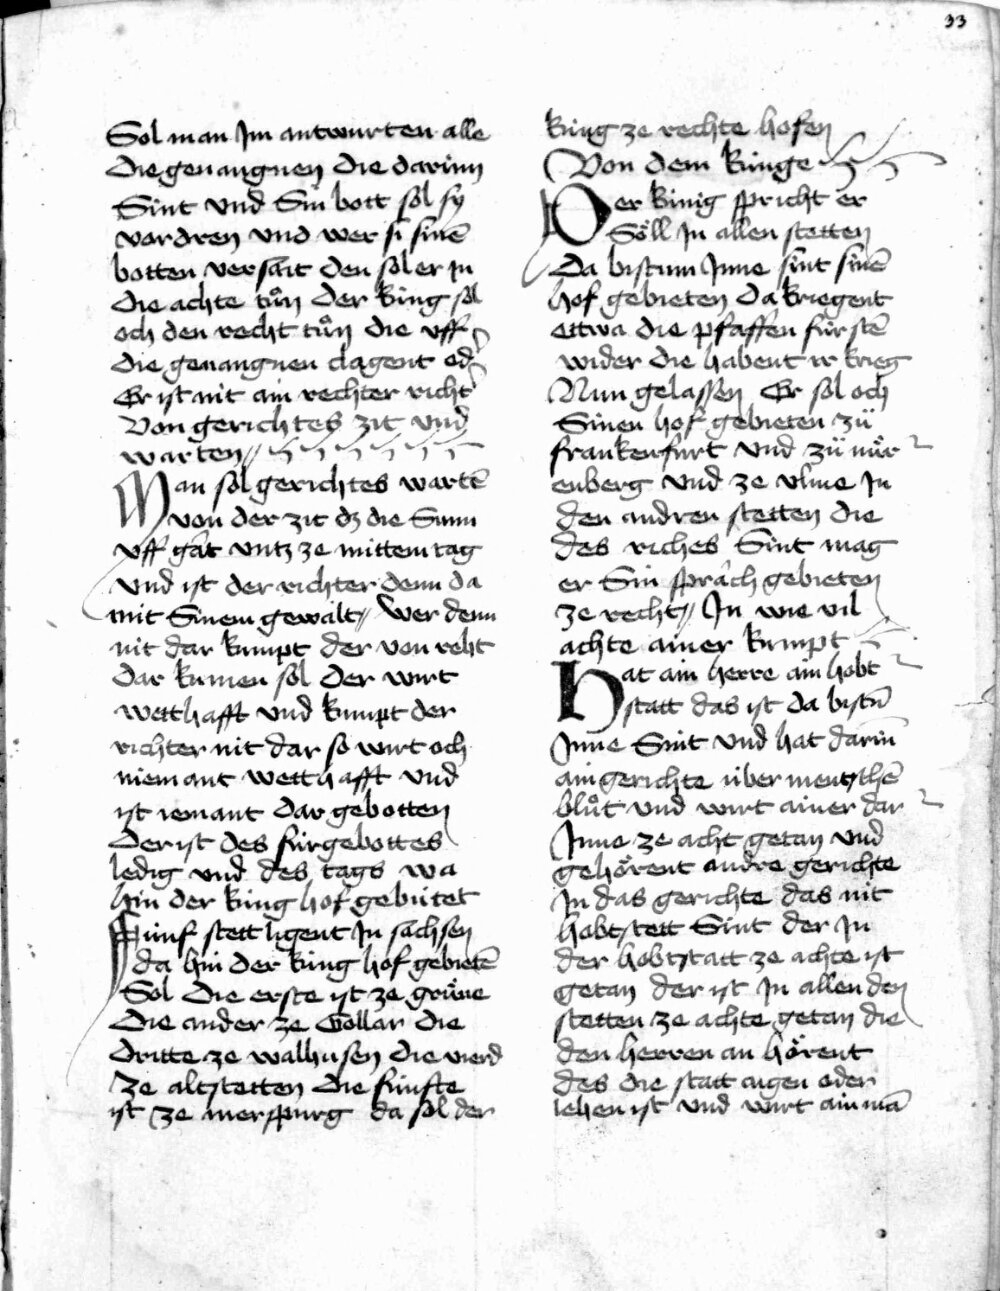 33
Sol man Im antwurten alle
Die genangnen Die darinn
Sint und Sin bott sol sy
vordren und wer si sinē
botten versait den sol er in
die achte tůn Der king sol
och den recht tůn die uff
die genangnen clagent od
Er ist nit ain rechter richt
Von gerichtes zit und
warten
Man sol gerichtes wartē
von der zit dz die Sunn
uff gat untz ze mittem tag
und ist der richter denn da
mit Sinem gewalt// wer denn
nit dar kumpt der von reht
dar kumen sol Der wirt
wetthafft und kumpt der
richter nit dar so wirt och
niemant wetthafft und
ist iemant dar gebotten
Der ist des fürgebottes
ledig und des tags wa
hin der king hof gebütet
Fünf stett ligent In sachsen
da hin der king hof gebietē
Sol Die erste ist ze grůne
Die ander ze Gollar Die
Dritte ze walhusen Die vierd
Ze altstetten Die fünfte
ist ze merspurg da sol der
king ze rechte hofen
Von dem kunge
Der kinig spricht er
Söll In allen stetten
Da bistum Inne sint sinē
hof gebieten Da kriegent
ettwa die pfaffen fürstē
wider die habent ir krieg
Nun gelassen Er sol och
Sinen hof gebieten zü
frankenfurt und zü nür
enberg und ze ulme In
den andren stetten die
des riches Sint mag
er Sin sprach gebieten
ze recht// In wie vil
achte ainer kumpt
Hat ain herre ain hobt
statt das ist da bistū
Inne Sint und hat darin
ain gerichte über mentschē
blůt und wirt ainer dar
Inne ze acht getan und
gehörent andre gerichte
In das gerichte das nit
hobtstett Sint der In
der hobtstatt ze achte ist
getan der ist In allen den
stetten ze achte getan die
den herren an hörent
des die statt aigen oder
lehen ist und wirt ain mā